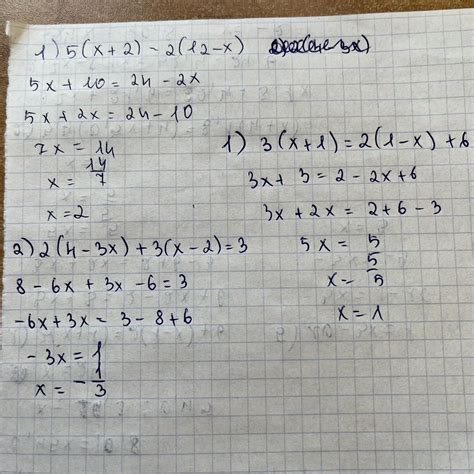 1) 5(x+2) - 2(12-x)
5x + 10 = 24 - 2x
5x + 2x = 24 - 10
7x = 14
x = 14/7
x = 2
2) 2(4-3x) + 3(x-2) = 3
8 - 6x + 3x - 6 = 3
-6x + 3x = 3 - 8 + 6
-3x = 1
x = - 1/3
1) 3(x+1) = 2(1-x) + 6
3x + 3 = 2 - 2x + 6
3x + 2x = 2 + 6 - 3
5x = 5
x = 5/5
x = 1